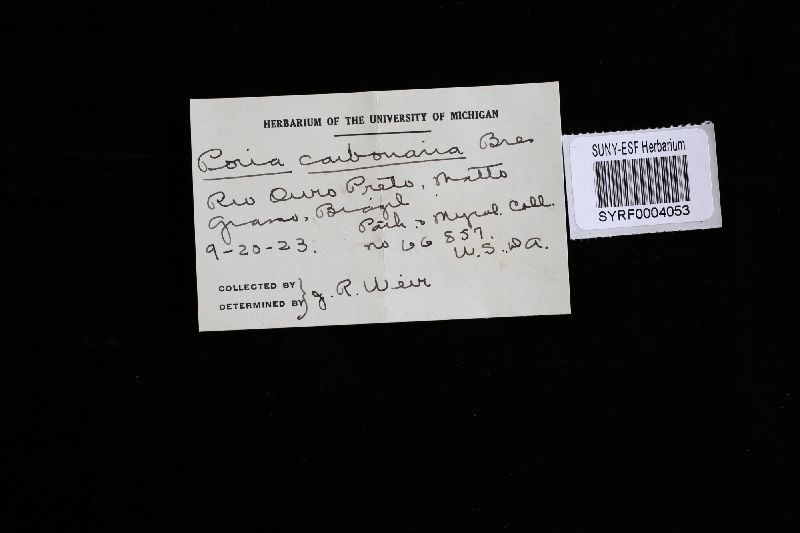 HERBARIUM OF THE UNIVERSITY OF MICHIGAN
Poria carbonaria Bres
Rio Ouro Preto, Matto
Grasso, Brazil
Path. & Mycol. Coll.
9-20-23. no 66 857.
U.S.D.A.
COLLECTED BY
DETERMINED BY } J. R. Weir
SUNY-ESF Herbarium
SYRF0004053